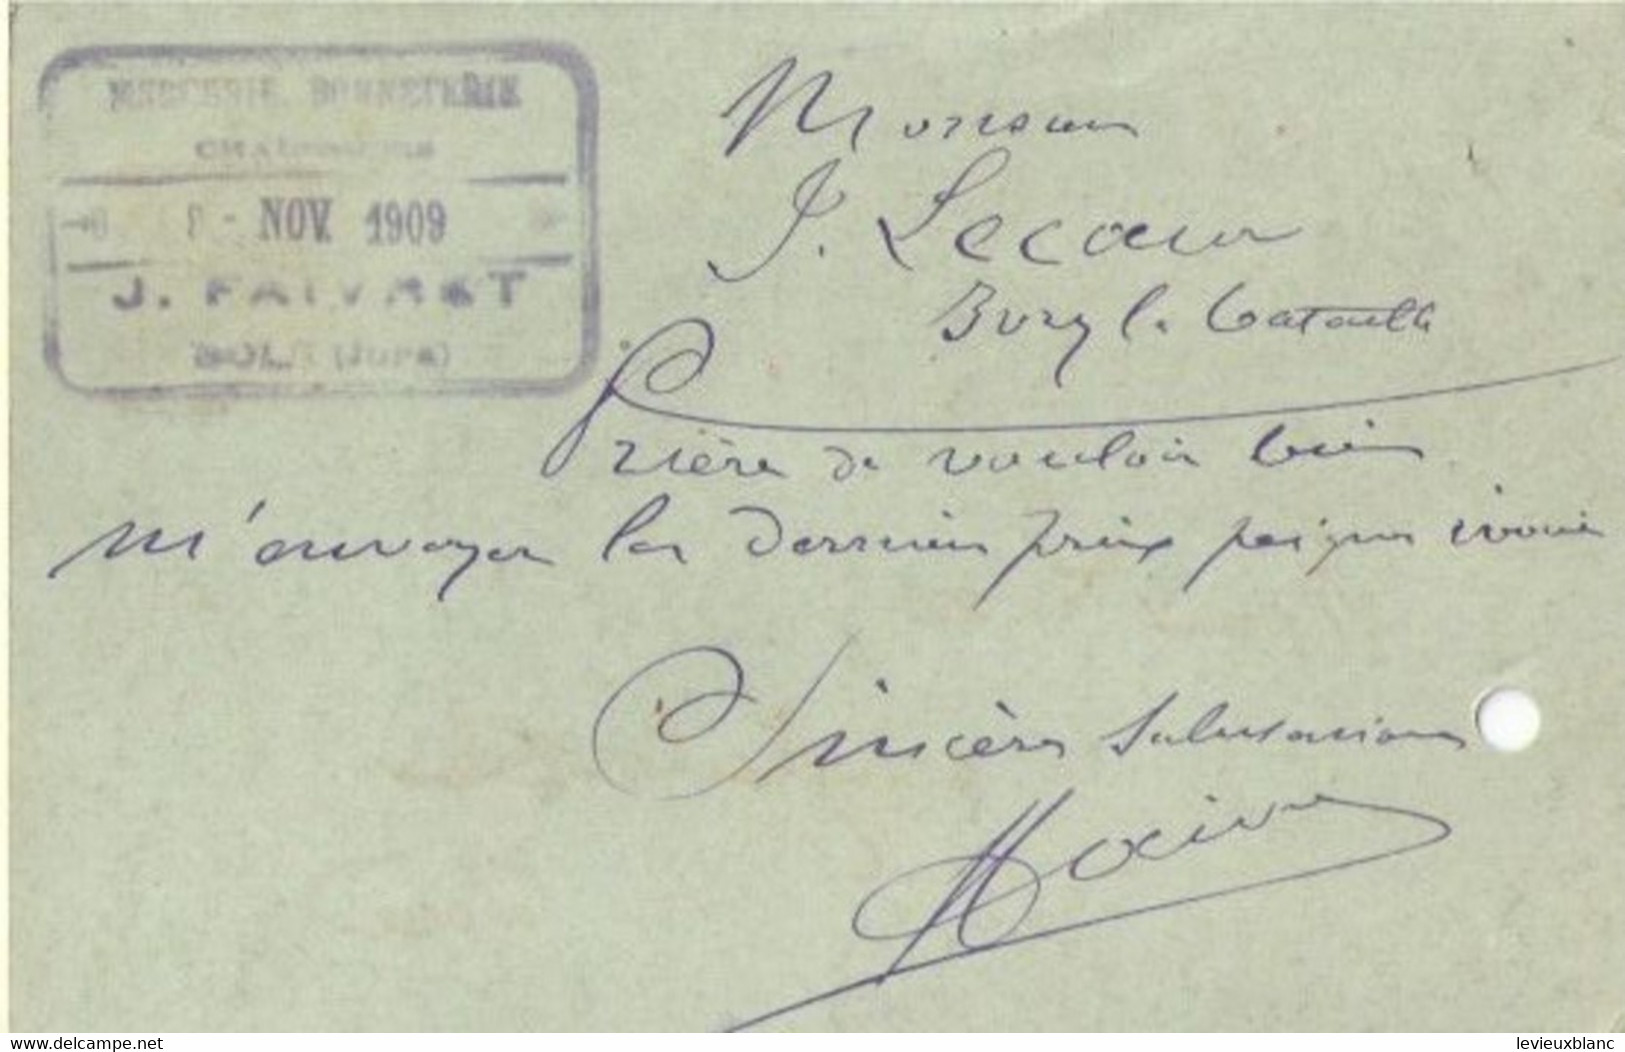 MERCERIE, BONNETERIE
CHAUSSURES
8 - NOV. 1909
J. FAIVRET
DOLE (Jura)
Monsieur
J. Lecoeur
Ivry la Bataille
Prière de vouloir bien
m'envoyer les derniers prix peignes ivoire
Sincères salutations
levieuxblanc